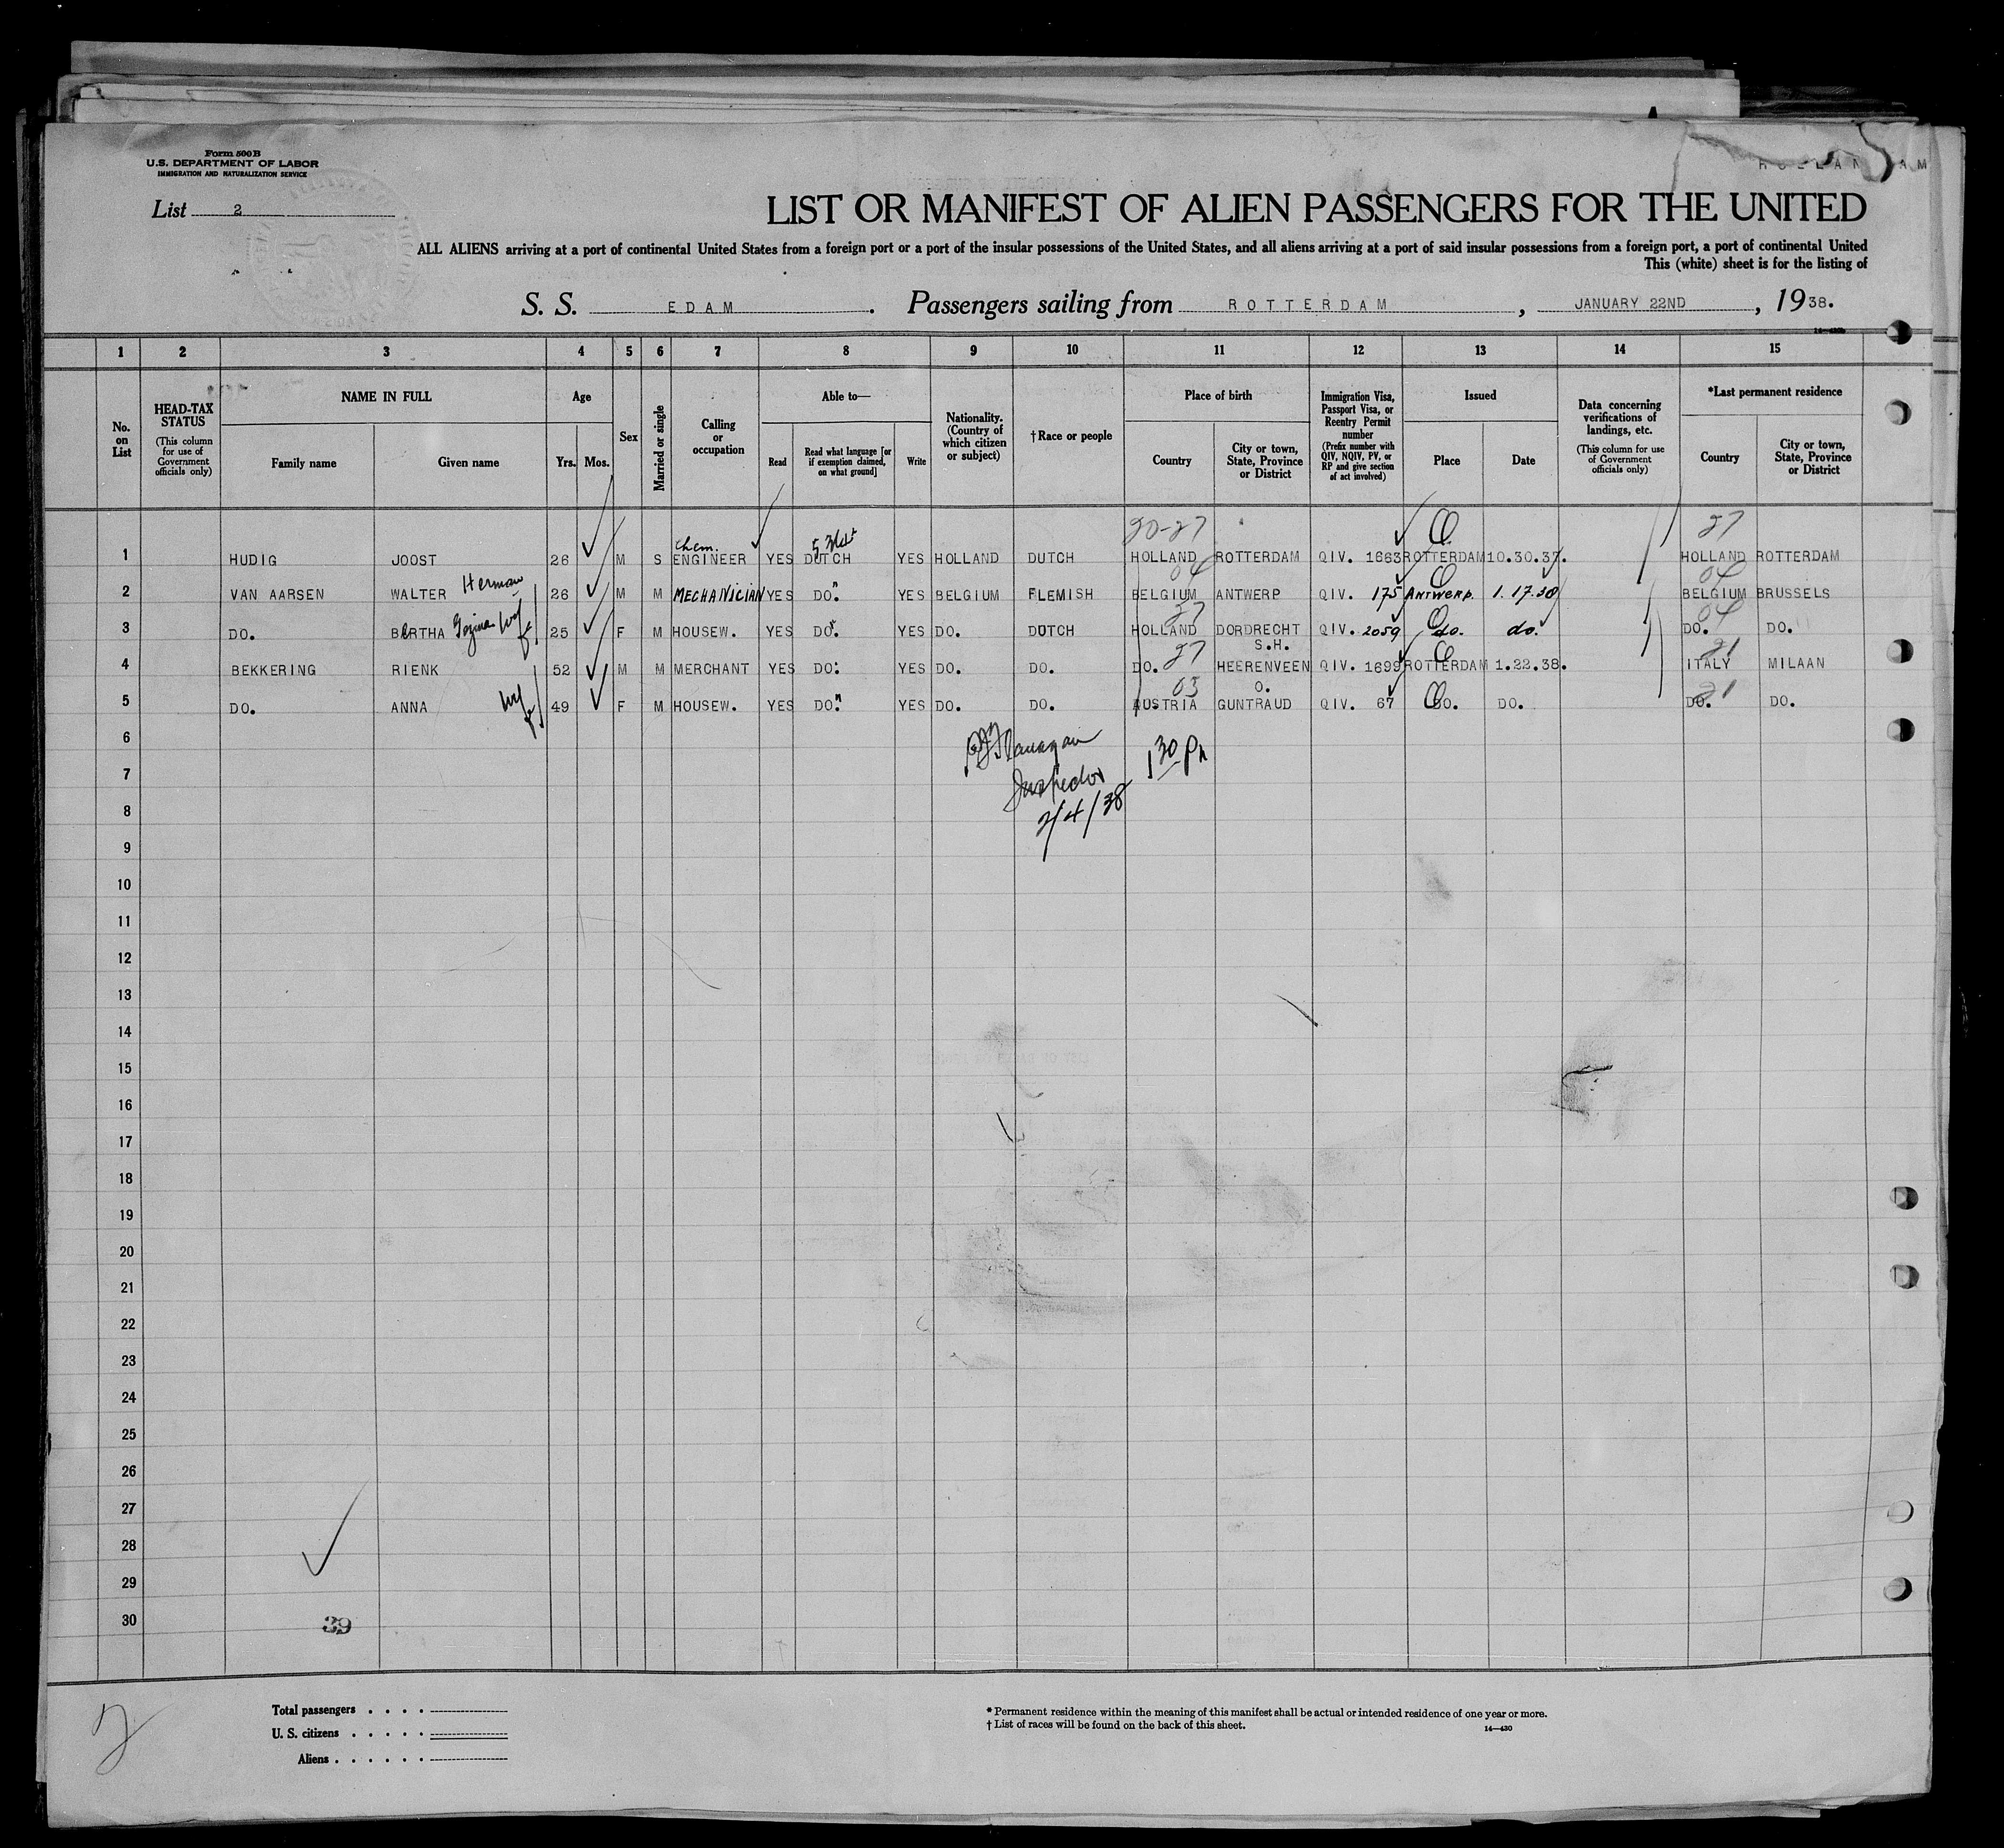 Form 500 B
U.S. DEPARTMENT OF LABOR
IMMIGRATION AND NATURALIZATION SERVICE
HOLLAN AM
List 2
LIST OR MANIFEST OF ALIEN PASSENGERS FOR THE UNITED
ALL ALIENS arriving at a port of continental United States from a foreign port or a port of the insular possessions of the United States, and all aliens arriving at a port of said insular possessions from a foreign port, a port of continental United
This (white) sheet is for the listing of
S. S. EDAM. Passengers sailing from ROTTERDAM, JANUARY 22ND, 1938.
1 2 3 4 5 6 7 8 9 10 11 12 13 14 15
No. on List
HEAD-TAX STATUS (This column for use of Government officials only)
NAME IN FULL
Family name
Given name
Age
Yrs. Mos.
Sex
Married or single
Calling or occupation
Able to—
Read
Read what language [or if exemption claimed, on what ground]
Write
Nationality. (Country of which citizen or subject)
†Race or people
Place of birth
Country
City or town, State, Province or District
Immigration Visa, Passport Visa, or Reentry Permit number (Prefix number with QIV, NQIV, PV, or RP and give section of act involved)
Issued
Place
Date
Data concerning verifications of landings, etc. (This column for use of Government officials only)
*Last permanent residence
Country
City or town, State, Province or District
20-27 27
Chem.
1 HUDIG JOOST 26 M S ENGINEER YES DUTCH YES HOLLAND DUTCH HOLLAND ROTTERDAM QIV. 1663 ROTTERDAM 10.30.37. HOLLAND ROTTERDAM
04 04
2 VAN AARSEN WALTER Herman 26 M M MECHANICIAN YES DO." YES BELGIUM FLEMISH BELGIUM ANTWERP QIV. 175 Antwerp. 1.17.38 BELGIUM BRUSSELS
27 04
3 DO. BERTHA wife 25 F M HOUSEW. YES DO." YES DO. DUTCH HOLLAND DORDRECHT QIV. 2059 do. do. DO. DO.
S.H.
27 21
4 BEKKERING RIENK 52 M M MERCHANT YES DO. YES DO. DO. DO. HEERENVEEN QIV. 1699 ROTTERDAM 1.22.38. ITALY MILAAN
03 O. 21
5 DO. ANNA wife 49 F M HOUSEW. YES DO." YES DO. DO. AUSTRIA GUNTRAUD QIV. 67 DO. DO. DO. DO.
6
Flanagan 1 30 Pm
7
Inspector
8
2/4/38
9
10
11
12
13
14
15
16
17
18
19
20
21
22
23
24
25
26
27
28
29
30
39
2
Total passengers . . . .
U. S. citizens . . . . .
Aliens . . . . . .
* Permanent residence within the meaning of this manifest shall be actual or intended residence of one year or more.
† List of races will be found on the back of this sheet. 14—430